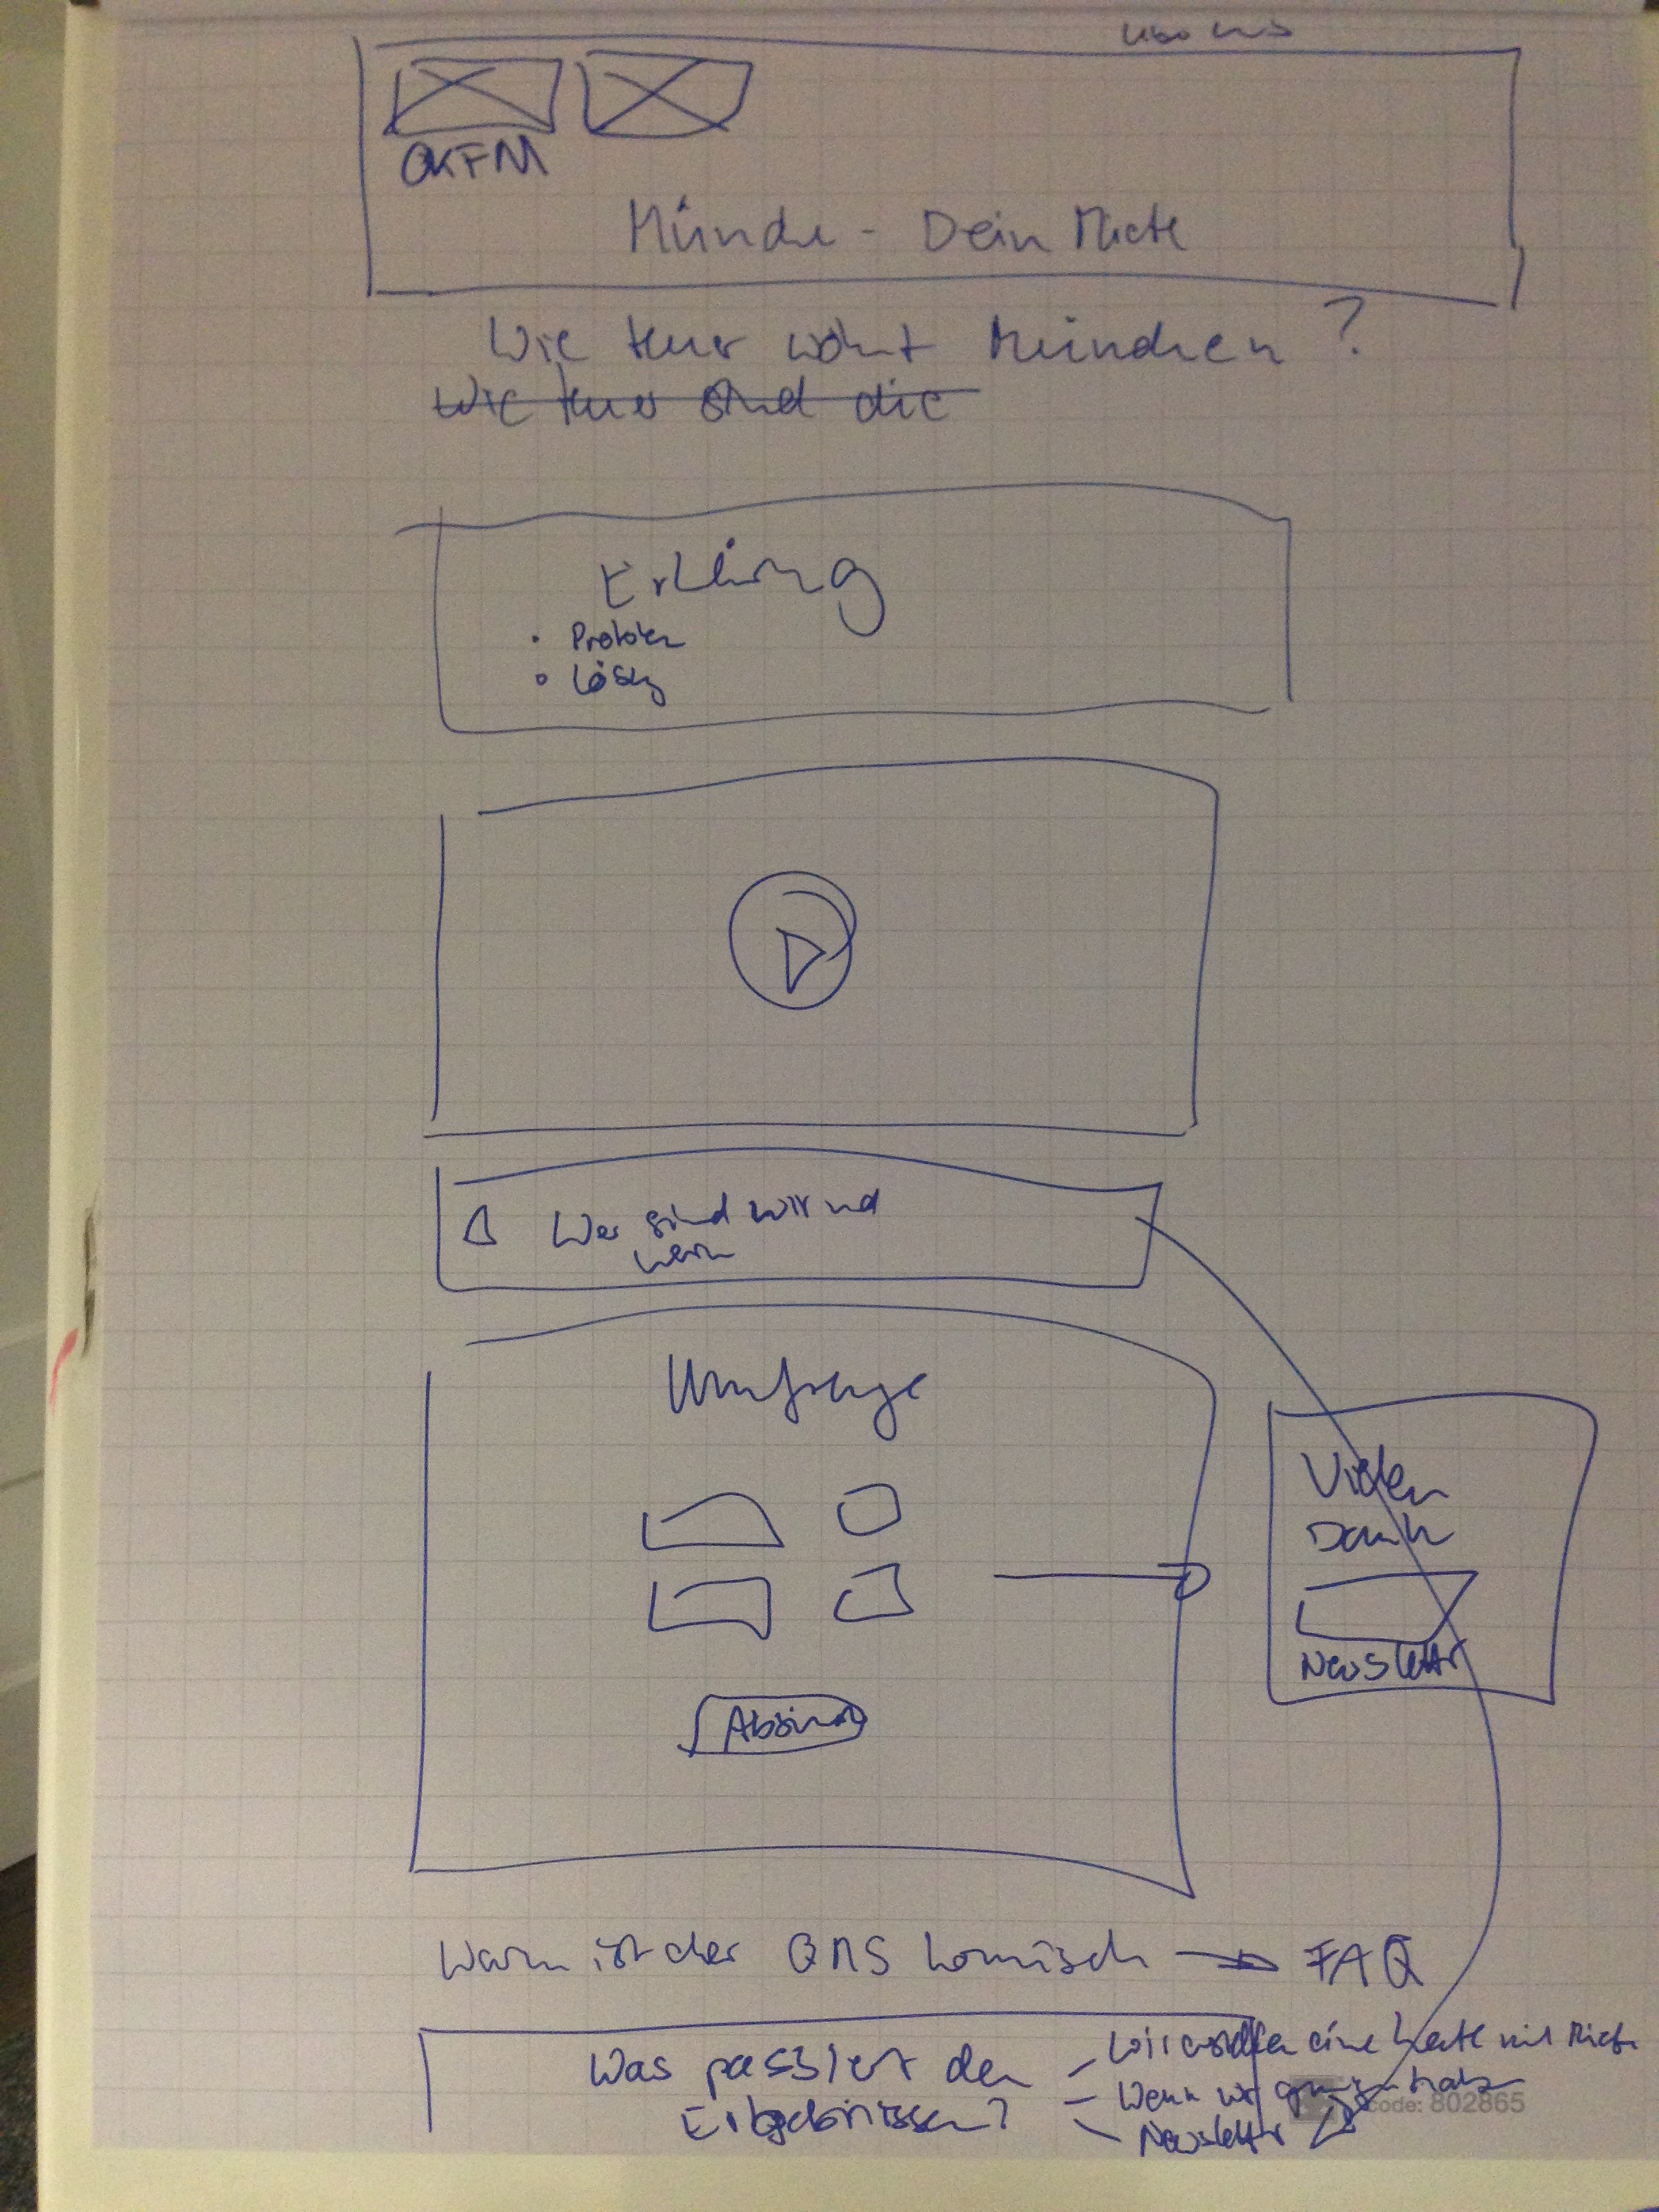 Über uns
OKFM
München - Dein Miete
Wie teuer wohnt München ?
Wie teuer sind die
Erklärung
• Problem
• Lösung
Wer sind wir und
wenn
Umfrage
Absenden
Vielen
Dank
Newsletter
Warum ist der QMS komisch → FAQ
Was passiert den
Ergebnissen?
- Wir erstellen eine Karte mit Miet
- Wenn wir genügen haben
- Newsletter
code: 802865